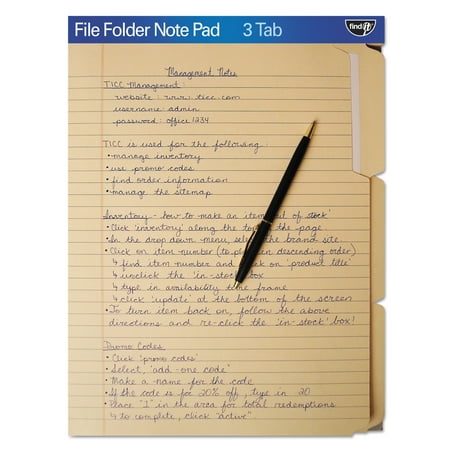 File Folder Note Pad 3 Tab find it
Management Notes
TICC Management:
website: www.ticc.com
username: admin
password: office1234
TICC is used for the following:
• manage inventory
• use promo codes
• find order information
• manage the sitemap
Inventory - how to make an item out of stock'
• Click 'inventory' along the top of the page
• In the drop down menu, select the brand site
• Click on item number (to put in descending order)
↳ find item number and click on 'product title'
↳ unclick the 'in-stock' box
↳ type in availability time frame
↳ click 'update' at the bottom of the screen
• To turn item back on, follow the above
directions and re-click the 'in-stock' box!
Promo Codes
• Click 'promo codes'
• Select, 'add-one code'
• Make a name for the code
• If the code is for 20% off, type in 20
• Place "1" in the area for total redemptions
↳ to complete, click "active".